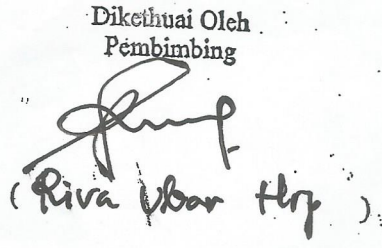 Dikethuai Oleh
Pembimbing
( Riva Ubar Hrp )